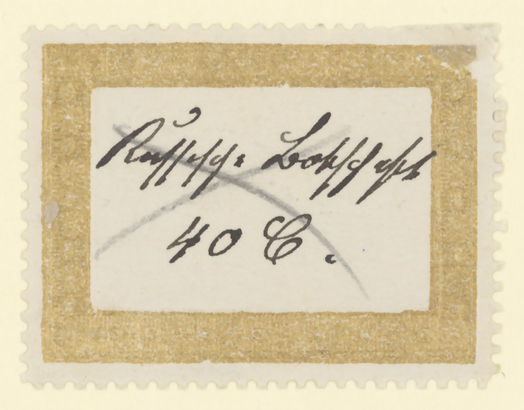 Russische Botschaft
40 C.